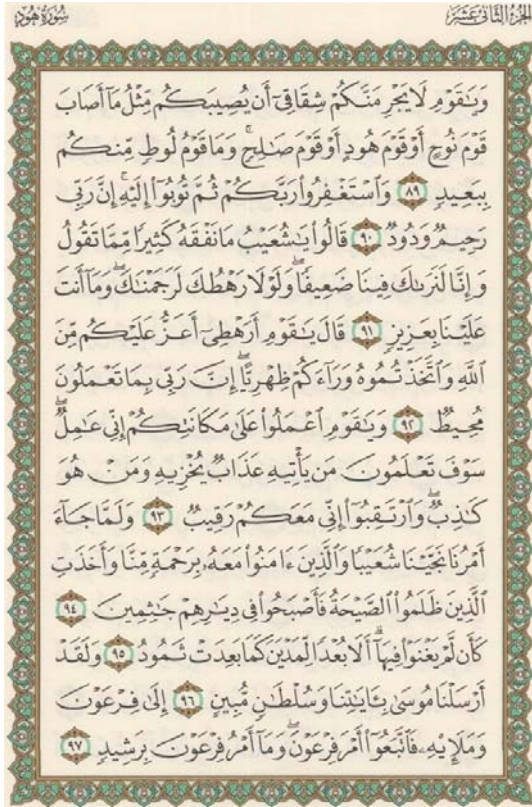 سُورَةُ هُودٍ الجُزْءُ الثَّانِي عَشَرَ
وَيَٰقَوْمِ لَا يَجْرِمَنَّكُمْ شِقَاقِىٓ أَن يُصِيبَكُم مِّثْلُ مَآ أَصَابَ
قَوْمَ نُوحٍ أَوْ قَوْمَ هُودٍ أَوْ قَوْمَ صَٰلِحٍ ۚ وَمَا قَوْمُ لُوطٍ مِّنكُم
بِبَعِيدٍ ٨٩ وَٱسْتَغْفِرُوا۟ رَبَّكُمْ ثُمَّ تُوبُوٓا۟ إِلَيْهِ ۚ إِنَّ رَبِّى
رَحِيمٌ وَدُودٌ ٩٠ قَالُوا۟ يَٰشُعَيْبُ مَا نَفْقَهُ كَثِيرًا مِّمَّا تَقُولُ
وَإِنَّا لَنَرَىٰكَ فِينَا ضَعِيفًا ۖ وَلَوْلَا رَهْطُكَ لَرَجَمْنَٰكَ ۖ وَمَآ أَنتَ
عَلَيْنَا بِعَزِيزٍ ٩١ قَالَ يَٰقَوْمِ أَرَهْطِىٓ أَعَزُّ عَلَيْكُم مِّنَ
ٱللَّهِ وَٱتَّخَذْتُمُوهُ وَرَآءَكُمْ ظِهْرِيًّا ۖ إِنَّ رَبِّى بِمَا تَعْمَلُونَ
مُحِيطٌ ٩٢ وَيَٰقَوْمِ ٱعْمَلُوا۟ عَلَىٰ مَكَانَتِكُمْ إِنِّى عَٰمِلٌ ۖ
سَوْفَ تَعْلَمُونَ مَن يَأْتِيهِ عَذَابٌ يُخْزِيهِ وَمَنْ هُوَ
كَٰذِبٌ ۖ وَٱرْتَقِبُوٓا۟ إِنِّى مَعَكُمْ رَقِيبٌ ٩٣ وَلَمَّا جَآءَ
أَمْرُنَا نَجَّيْنَا شُعَيْبًا وَٱلَّذِينَ ءَامَنُوا۟ مَعَهُۥ بِرَحْمَةٍ مِّنَّا وَأَخَذَتِ
ٱلَّذِينَ ظَلَمُوا۟ ٱلصَّيْحَةُ فَأَصْبَحُوا۟ فِى دِيَٰرِهِمْ جَٰثِمِينَ ٩٤
كَأَن لَّمْ يَغْنَوْا۟ فِيهَآ ۗ أَلَا بُعْدًا لِّمَدْيَنَ كَمَا بَعِدَتْ ثَمُودُ ٩٥ وَلَقَدْ
أَرْسَلْنَا مُوسَىٰ بِـَٔايَٰتِنَا وَسُلْطَٰنٍ مُّبِينٍ ٩٦ إِلَىٰ فِرْعَوْنَ
وَمَلَإِي۟هِۦ فَٱتَّبَعُوٓا۟ أَمْرَ فِرْعَوْنَ ۖ وَمَآ أَمْرُ فِرْعَوْنَ بِرَشِيدٍ ٩٧